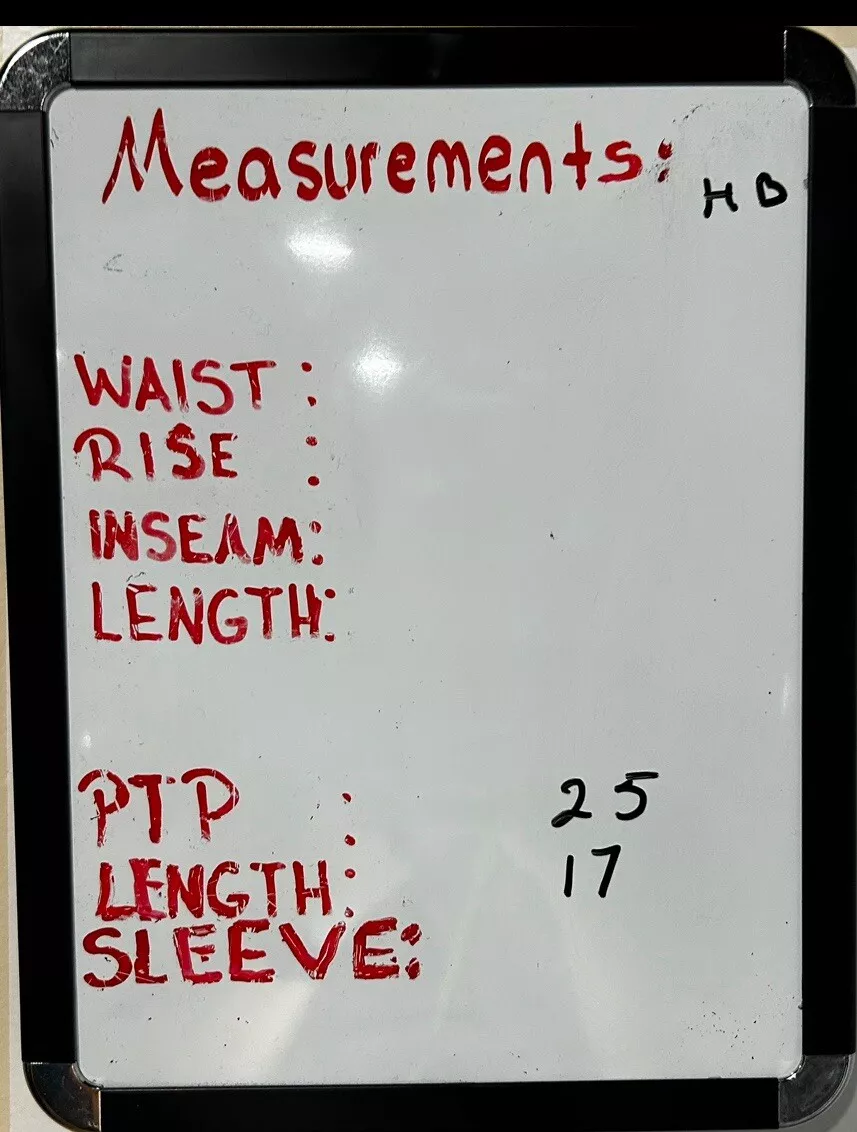 Measurements:
HB
WAIST :
RISE :
INSEAM:
LENGTH:
PTP : 25
LENGTH: 17
SLEEVE: